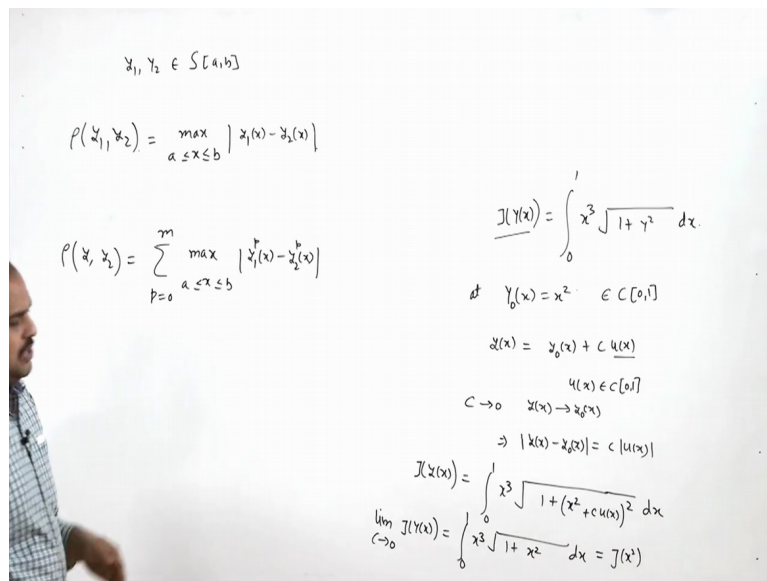 y₁, y₂ ∈ S[a,b]
ρ(y₁, y₂) = max_{a ≤ x ≤ b} | y₁(x) - y₂(x) |
ρ(y, y₂) = ∑_{p=0}^{m} max_{a ≤ x ≤ b} | y₁^p(x) - y₂^p(x) |
J(y(x)) = ∫₀¹ x³ √(1 + y²) dx.
at y₀(x) = x² ∈ C[0,1]
y(x) = y₀(x) + C u(x)
u(x) ∈ C[0,1]
C → 0 y(x) → y₀(x)
⇒ | y(x) - y₀(x) | = C | u(x) |
J(y(x)) = ∫₀¹ x³ √(1 + (x² + c u(x))²) dx
lim_{C→0} J(y(x)) = ∫₀¹ x³ √(1 + x²) dx = J(x²)